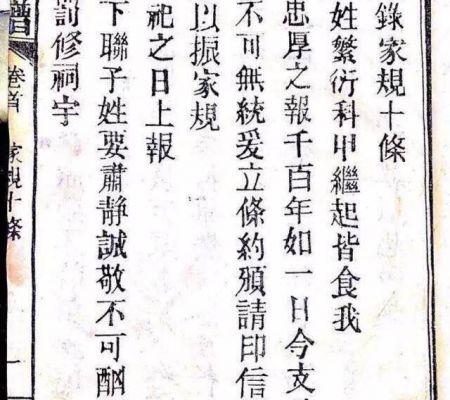 錄家規十條
姓繁衍科甲繼起皆食我
忠厚之報千百年如一日今支
不可無統爰立條約頒請印信
以振家規
祀之日上報
下聯子姓要肅靜誠敬不可酗
罰修祠宇
譜 卷首 家規十條 一